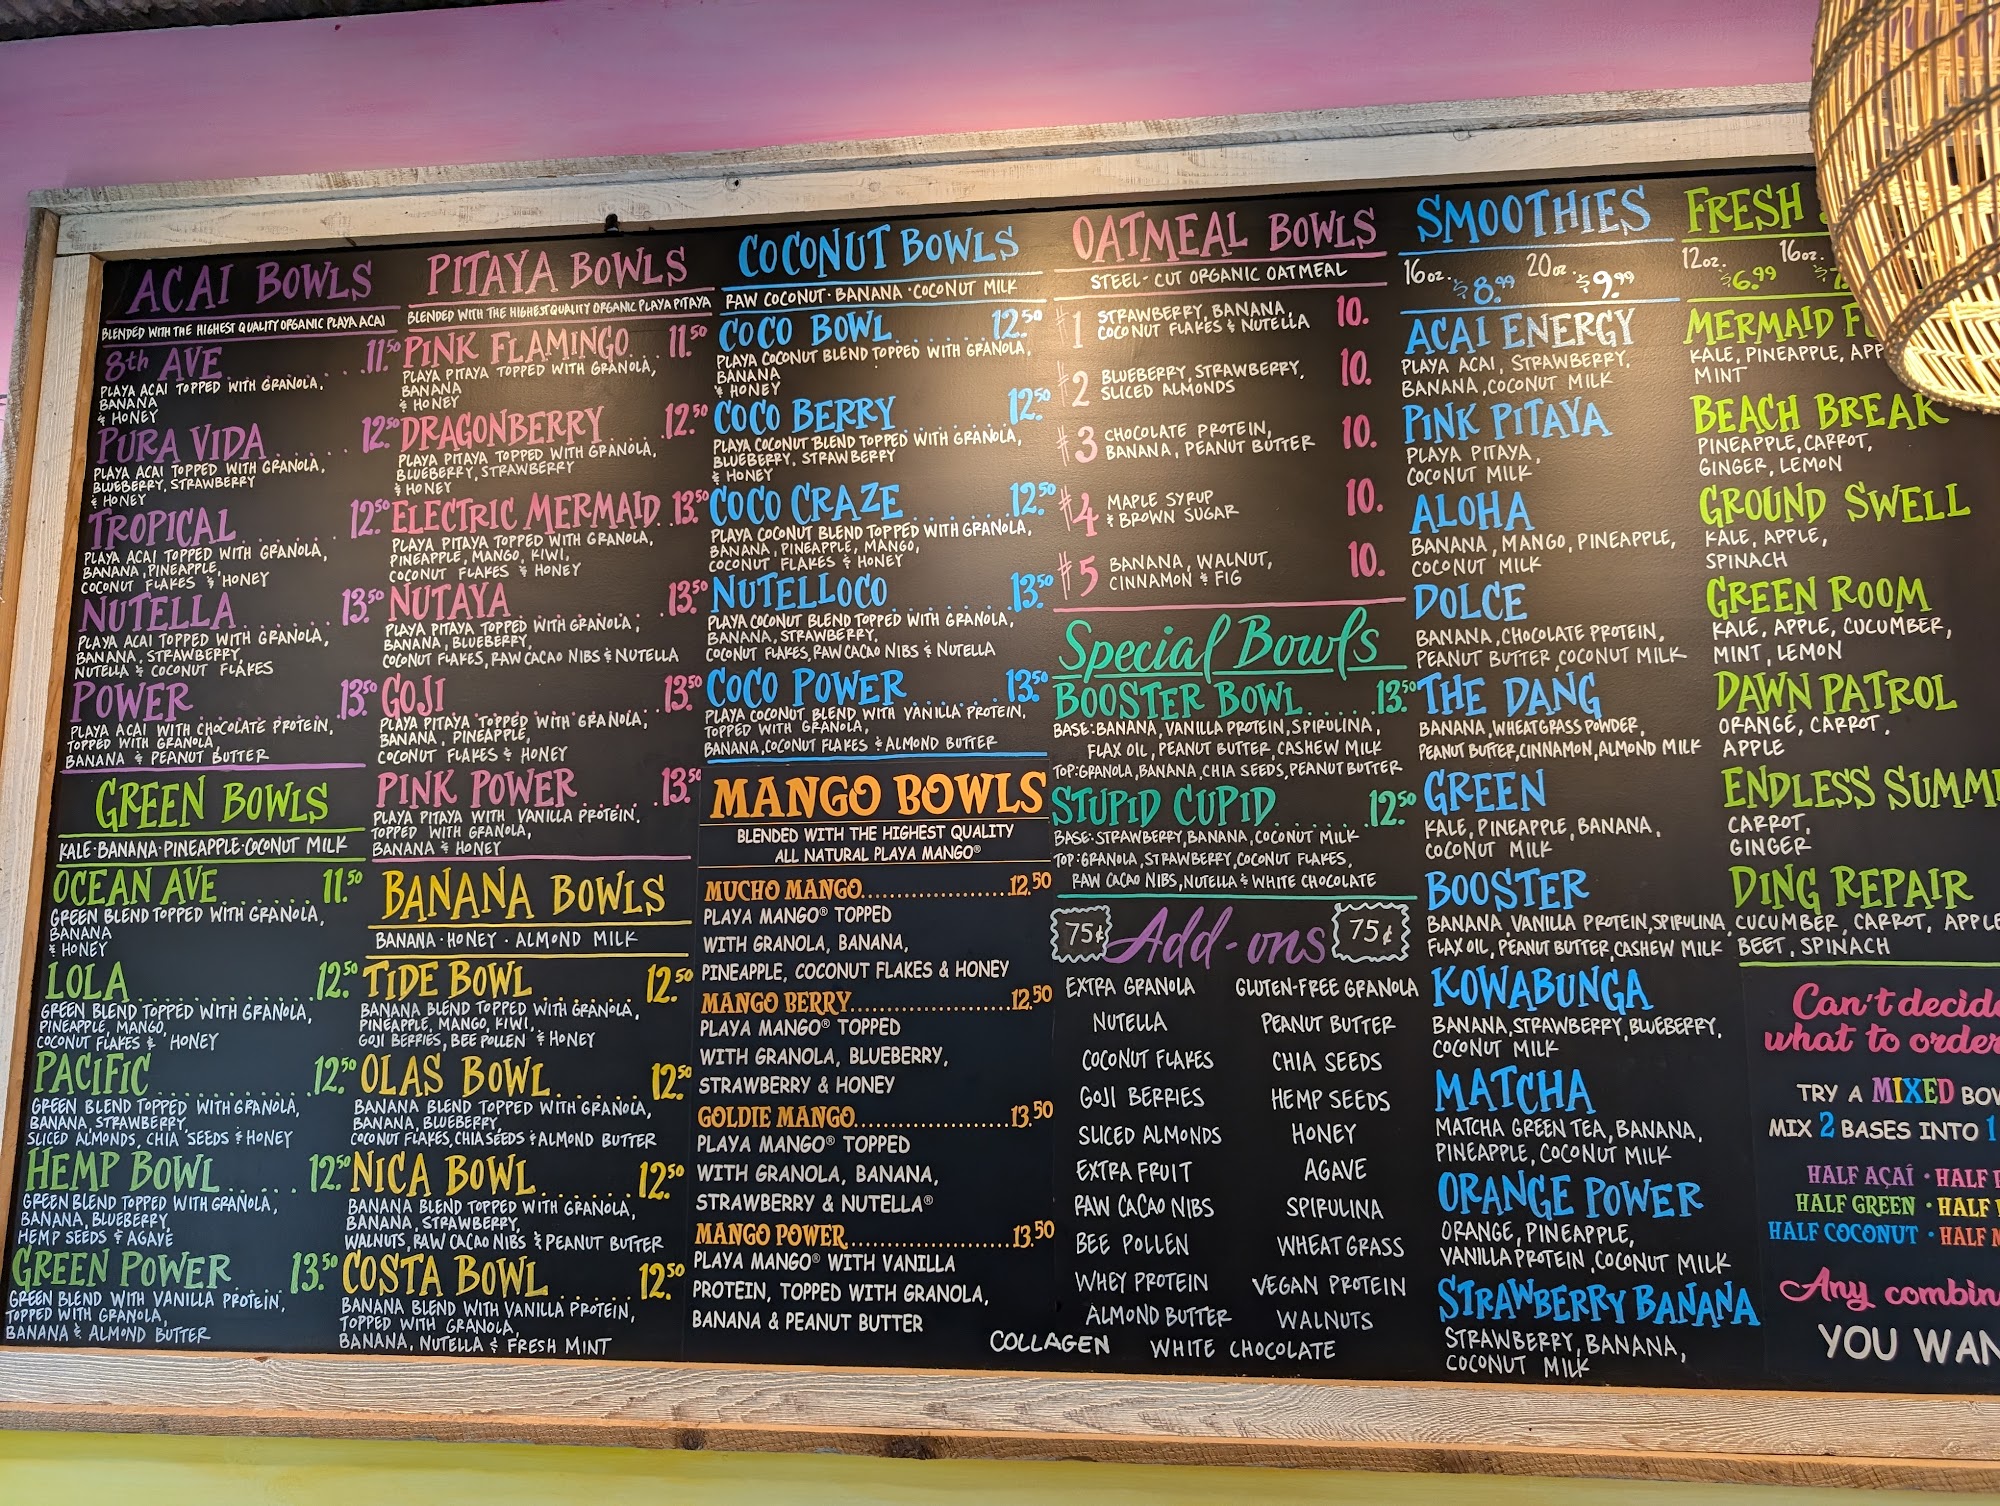 ACAI BOWLS
BLENDED WITH THE HIGHEST QUALITY ORGANIC PLAYA ACAI
8th AVE 11.50
PLAYA ACAI TOPPED WITH GRANOLA,
BANANA
& HONEY
PURA VIDA 12.50
PLAYA ACAI TOPPED WITH GRANOLA,
BLUEBERRY, STRAWBERRY
& HONEY
TROPICAL 12.50
PLAYA ACAI TOPPED WITH GRANOLA,
BANANA, PINEAPPLE,
COCONUT FLAKES & HONEY
NUTELLA 13.50
PLAYA ACAI TOPPED WITH GRANOLA,
BANANA, STRAWBERRY,
NUTELLA & COCONUT FLAKES
POWER 13.50
PLAYA ACAI WITH CHOCOLATE PROTEIN,
TOPPED WITH GRANOLA,
BANANA & PEANUT BUTTER
GREEN BOWLS
KALE · BANANA · PINEAPPLE · COCONUT MILK
OCEAN AVE 11.50
GREEN BLEND TOPPED WITH GRANOLA,
BANANA
& HONEY
LOLA 12.50
GREEN BLEND TOPPED WITH GRANOLA,
PINEAPPLE, MANGO,
COCONUT FLAKES & HONEY
PACIFIC 12.50
GREEN BLEND TOPPED WITH GRANOLA,
BANANA, STRAWBERRY,
SLICED ALMONDS, CHIA SEEDS & HONEY
HEMP BOWL 12.50
GREEN BLEND TOPPED WITH GRANOLA,
BANANA, BLUEBERRY,
HEMP SEEDS & AGAVE
GREEN POWER 13.50
GREEN BLEND WITH VANILLA PROTEIN,
TOPPED WITH GRANOLA,
BANANA & ALMOND BUTTER
PITAYA BOWLS
BLENDED WITH THE HIGHEST QUALITY ORGANIC PLAYA PITAYA
PINK FLAMINGO 11.50
PLAYA PITAYA TOPPED WITH GRANOLA,
BANANA
& HONEY
DRAGONBERRY 12.50
PLAYA PITAYA TOPPED WITH GRANOLA,
BLUEBERRY, STRAWBERRY
& HONEY
ELECTRIC MERMAID 13.50
PLAYA PITAYA TOPPED WITH GRANOLA,
PINEAPPLE, MANGO, KIWI,
COCONUT FLAKES & HONEY
NUTAYA 13.50
PLAYA PITAYA TOPPED WITH GRANOLA,
BANANA, BLUEBERRY,
COCONUT FLAKES, RAW CACAO NIBS & NUTELLA
GOJI 13.50
PLAYA PITAYA TOPPED WITH GRANOLA,
BANANA, PINEAPPLE,
COCONUT FLAKES & HONEY
PINK POWER 13.50
PLAYA PITAYA WITH VANILLA PROTEIN,
TOPPED WITH GRANOLA,
BANANA & HONEY
BANANA BOWLS
BANANA · HONEY · ALMOND MILK
TIDE BOWL 12.50
BANANA BLEND TOPPED WITH GRANOLA,
PINEAPPLE, MANGO, KIWI,
GOJI BERRIES, BEE POLLEN & HONEY
OLAS BOWL 12.50
BANANA BLEND TOPPED WITH GRANOLA,
BANANA, BLUEBERRY,
COCONUT FLAKES, CHIA SEEDS & ALMOND BUTTER
NICA BOWL 12.50
BANANA BLEND TOPPED WITH GRANOLA,
BANANA, STRAWBERRY,
WALNUTS, RAW CACAO NIBS & PEANUT BUTTER
COSTA BOWL 12.50
BANANA BLEND WITH VANILLA PROTEIN,
TOPPED WITH GRANOLA,
BANANA, NUTELLA & FRESH MINT
COCONUT BOWLS
RAW COCONUT · BANANA · COCONUT MILK
COCO BOWL 12.50
PLAYA COCONUT BLEND TOPPED WITH GRANOLA,
BANANA
& HONEY
COCO BERRY 12.50
PLAYA COCONUT BLEND TOPPED WITH GRANOLA,
BLUEBERRY, STRAWBERRY
& HONEY
COCO CRAZE 12.50
PLAYA COCONUT BLEND TOPPED WITH GRANOLA,
BANANA, PINEAPPLE, MANGO,
COCONUT FLAKES & HONEY
NUTELLOCO 13.50
PLAYA COCONUT BLEND TOPPED WITH GRANOLA,
BANANA, STRAWBERRY,
COCONUT FLAKES, RAW CACAO NIBS & NUTELLA
COCO POWER 13.50
PLAYA COCONUT BLEND WITH VANILLA PROTEIN,
TOPPED WITH GRANOLA,
BANANA, COCONUT FLAKES & ALMOND BUTTER
MANGO BOWLS
BLENDED WITH THE HIGHEST QUALITY
ALL NATURAL PLAYA MANGO®
MUCHO MANGO 12.50
PLAYA MANGO® TOPPED
WITH GRANOLA, BANANA,
PINEAPPLE, COCONUT FLAKES & HONEY
MANGO BERRY 12.50
PLAYA MANGO® TOPPED
WITH GRANOLA, BLUEBERRY,
STRAWBERRY & HONEY
GOLDIE MANGO 13.50
PLAYA MANGO® TOPPED
WITH GRANOLA, BANANA,
STRAWBERRY & NUTELLA®
MANGO POWER 13.50
PLAYA MANGO® WITH VANILLA
PROTEIN, TOPPED WITH GRANOLA,
BANANA & PEANUT BUTTER
OATMEAL BOWLS
STEEL-CUT ORGANIC OATMEAL
#1 STRAWBERRY, BANANA, 10.
COCONUT FLAKES & NUTELLA
#2 BLUEBERRY, STRAWBERRY, 10.
SLICED ALMONDS
#3 CHOCOLATE PROTEIN, 10.
BANANA, PEANUT BUTTER
#4 MAPLE SYRUP 10.
& BROWN SUGAR
#5 BANANA, WALNUT, 10.
CINNAMON & FIG
Special Bowls
BOOSTER BOWL 13.50
BASE: BANANA, VANILLA PROTEIN, SPIRULINA,
FLAX OIL, PEANUT BUTTER, CASHEW MILK
TOP: GRANOLA, BANANA, CHIA SEEDS, PEANUT BUTTER
STUPID CUPID 12.50
BASE: STRAWBERRY, BANANA, COCONUT MILK
TOP: GRANOLA, STRAWBERRY, COCONUT FLAKES,
RAW CACAO NIBS, NUTELLA & WHITE CHOCOLATE
75¢ Add-ons 75¢
EXTRA GRANOLA GLUTEN-FREE GRANOLA
NUTELLA PEANUT BUTTER
COCONUT FLAKES CHIA SEEDS
GOJI BERRIES HEMP SEEDS
SLICED ALMONDS HONEY
EXTRA FRUIT AGAVE
RAW CACAO NIBS SPIRULINA
BEE POLLEN WHEAT GRASS
WHEY PROTEIN VEGAN PROTEIN
ALMOND BUTTER WALNUTS
COLLAGEN WHITE CHOCOLATE
SMOOTHIES
16oz. $8.99 20oz. $9.99
ACAI ENERGY
PLAYA ACAI, STRAWBERRY,
BANANA, COCONUT MILK
PINK PITAYA
PLAYA PITAYA,
COCONUT MILK
ALOHA
BANANA, MANGO, PINEAPPLE,
COCONUT MILK
DOLCE
BANANA, CHOCOLATE PROTEIN,
PEANUT BUTTER, COCONUT MILK
THE DANG
BANANA, WHEATGRASS POWDER,
PEANUT BUTTER, CINNAMON, ALMOND MILK
GREEN
KALE, PINEAPPLE, BANANA,
COCONUT MILK
BOOSTER
BANANA, VANILLA PROTEIN, SPIRULINA,
FLAX OIL, PEANUT BUTTER, CASHEW MILK
KOWABUNGA
BANANA, STRAWBERRY, BLUEBERRY,
COCONUT MILK
MATCHA
MATCHA GREEN TEA, BANANA,
PINEAPPLE, COCONUT MILK
ORANGE POWER
ORANGE, PINEAPPLE,
VANILLA PROTEIN, COCONUT MILK
STRAWBERRY BANANA
STRAWBERRY, BANANA,
COCONUT MILK
FRESH
12oz. $6.99 16oz.
MERMAID
KALE, PINEAPPLE,
MINT
BEACH BREAK
PINEAPPLE, CARROT,
GINGER, LEMON
GROUND SWELL
KALE, APPLE,
SPINACH
GREEN ROOM
KALE, APPLE, CUCUMBER,
MINT, LEMON
DAWN PATROL
ORANGE, CARROT,
APPLE
ENDLESS
CARROT,
GINGER
DING REPAIR
CUCUMBER, CARROT, APPLE
BEET, SPINACH
Can't
what to
TRY A MIXED
MIX 2 BASES INTO 1
HALF AÇAÍ · HALF
HALF GREEN · HALF
HALF COCONUT · HALF
Any
YOU